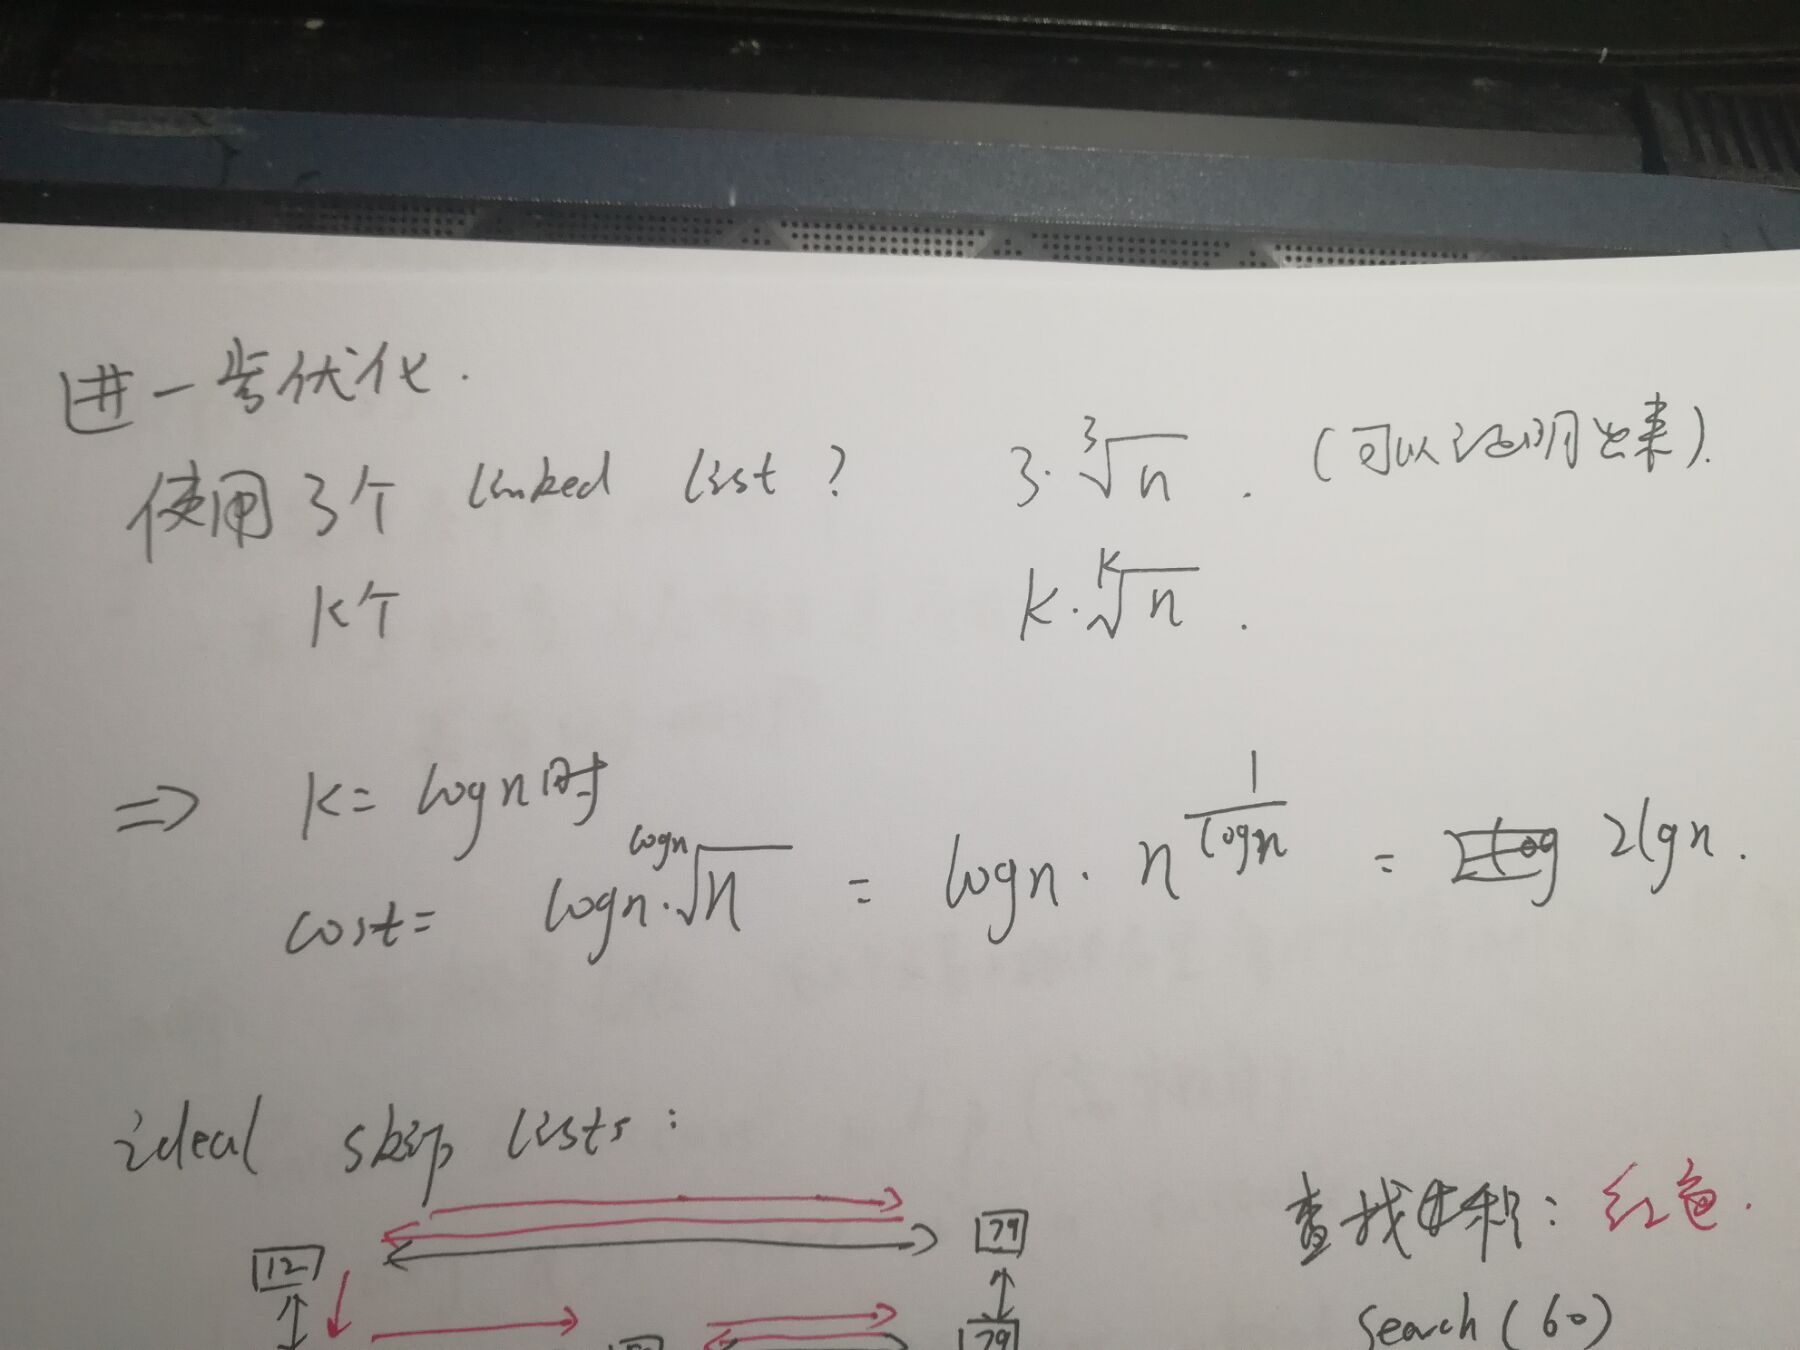 进一步优化.
使用3个 linked list ? 3·∛n . (可以证明出来).
K个 K·ᴷ√n .
⇒ K= logn时
cost= logn·ˡᵒᵍⁿ√n = logn · n^(1/logn) = 2lgn .
ideal skip lists :
查找 : 红色.
12 79
search (60)
79